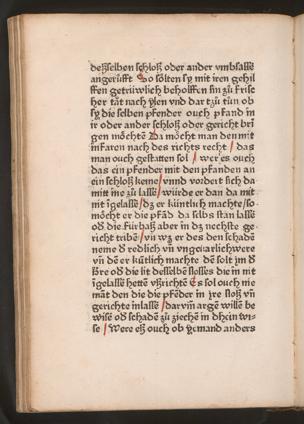 deßselben schloß oder ander vmbsässe
angerüfft So sölten sy mit iren gehil
ffen getrüwlich beholffen sin zu frisc
her tät nach ylen vnd dar tzu tün ob
sy die selben pfender ouch pfand in
ir oder ander schloß oder gericht brī
gen möchtē Da möcht man den mit
infaren nach des richts recht / das
man ouch gestatten sol / wer es ouch
das ein pfender mit den pfanden an
ein schloß keme / vnnd vordert sich da
mitt inne zu lassē / würde er dan da mit
mit īgelassē / dz er küntlich machte / so
möcht er die pfād da selbs stan lasse
oß die fürbaß aber in dz nechste ge
richt tribē / vn wz er des den schadē
neme oß redlich vn̄ vngeuarlich were
vn̄ dē er kūtlich machte dē solt jm ß
ßre oß die lüt desselben slosses die in mit
īgelassē hettē vßrichtē Es sol ouch nie
man den die die pfēder in ire sloß vn̄
gerichte inlassē / darvm̄ argē willē be
wisē oß schadē zu ziechē in dhein wi-
se / Were eß ouch ob yemand anders